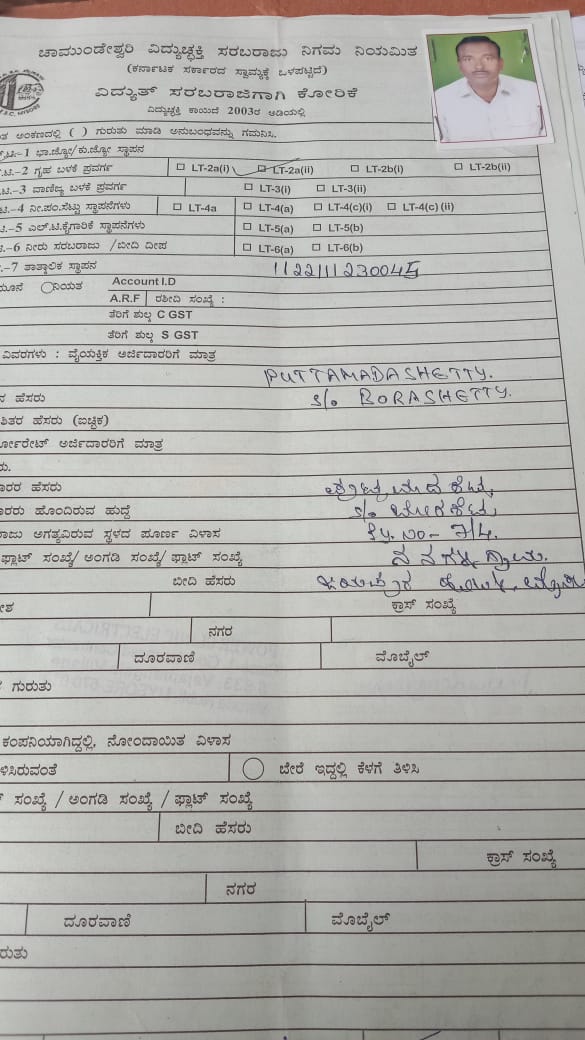 ಚಾಮುಂಡೇಶ್ವರಿ ವಿದ್ಯುಚ್ಛಕ್ತಿ ಸರಬರಾಜು ನಿಗಮ ನಿಯಮಿತ
(ಕರ್ನಾಟಕ ಸರ್ಕಾರದ ಸ್ವಾಮ್ಯಕ್ಕೆ ಒಳಪಟ್ಟಿದೆ)
ವಿದ್ಯುತ್ ಸರಬರಾಜಿಗಾಗಿ ಕೋರಿಕೆ
ವಿದ್ಯುಚ್ಛಕ್ತಿ ಕಾಯಿದೆ 2003ರ ಅಡಿಯಲ್ಲಿ
ಅಂಕಣದಲ್ಲಿ ( ) ಗುರುತು ಮಾಡಿ ಅನುಬಂಧವನ್ನು ಗಮನಿಸಿ.
-1 ಭಾ.ಜ್ಯೋ/ಕು.ಜ್ಯೋ ಸ್ಥಾಪನ
-2 ಗೃಹ ಬಳಕೆ ಪ್ರವರ್ಗ LT-2a(i) LT-2a(ii) LT-2b(i) LT-2b(ii)
-3 ವಾಣಿಜ್ಯ ಬಳಕೆ ಪ್ರವರ್ಗ LT-3(i) LT-3(ii)
-4 ನೀ.ಪಂ.ಸೆಟ್ಟು ಸ್ಥಾಪನೆಗಳು LT-4a LT-4(a) LT-4(c)(i) LT-4(c)(ii)
-5 ಎಲ್.ಟಿ.ಕೈಗಾರಿಕೆ ಸ್ಥಾಪನೆಗಳು LT-5(a) LT-5(b)
-6 ನೀರು ಸರಬರಾಜು /ಬೀದಿ ದೀಪ LT-6(a) LT-6(b)
-7 ತಾತ್ಕಾಲಿಕ ಸ್ಥಾಪನ
ನಿಯತ Account I.D
A.R.F ರಶೀದಿ ಸಂಖ್ಯೆ :
ತೆರಿಗೆ ಶುಲ್ಕ C GST
ತೆರಿಗೆ ಶುಲ್ಕ S GST
ವಿವರಗಳು : ವೈಯಕ್ತಿಕ ಅರ್ಜಿದಾರರಿಗೆ ಮಾತ್ರ
PUTTAMADASHETTY.
ಹೆಸರು S/o BORASHETTY.
ಹೆಸರು (ಐಚ್ಛಿಕ)
ಅರ್ಜಿದಾರರಿಗೆ ಮಾತ್ರ
ಹೆಸರು ಪುಟ್ಟಮಾದಶೆಟ್ಟಿ
ಹೊಂದಿರುವ ಹುದ್ದೆ S/o ಬೋರಶೆಟ್ಟಿ
ಅಗತ್ಯವಿರುವ ಸ್ಥಳದ ಪೂರ್ಣ ವಿಳಾಸ
ಫ್ಲಾಟ್ ಸಂಖ್ಯೆ/ ಅಂಗಡಿ ಸಂಖ್ಯೆ/ ಫ್ಲಾಟ್ ಸಂಖ್ಯೆ
ಬೀದಿ ಹೆಸರು ಜಯಪುರ
ಕ್ರಾಸ್ ಸಂಖ್ಯೆ
ನಗರ
ದೂರವಾಣಿ ಮೊಬೈಲ್
ಗುರುತು
ಕಂಪನಿಯಾಗಿದ್ದಲ್ಲಿ, ನೋಂದಾಯಿತ ವಿಳಾಸ
ಬೇರೆ ಇದ್ದಲ್ಲಿ ಕೆಳಗೆ ತಿಳಿಸಿ
ಸಂಖ್ಯೆ / ಅಂಗಡಿ ಸಂಖ್ಯೆ / ಫ್ಲಾಟ್ ಸಂಖ್ಯೆ
ಬೀದಿ ಹೆಸರು
ಕ್ರಾಸ್ ಸಂಖ್ಯೆ
ನಗರ
ದೂರವಾಣಿ ಮೊಬೈಲ್